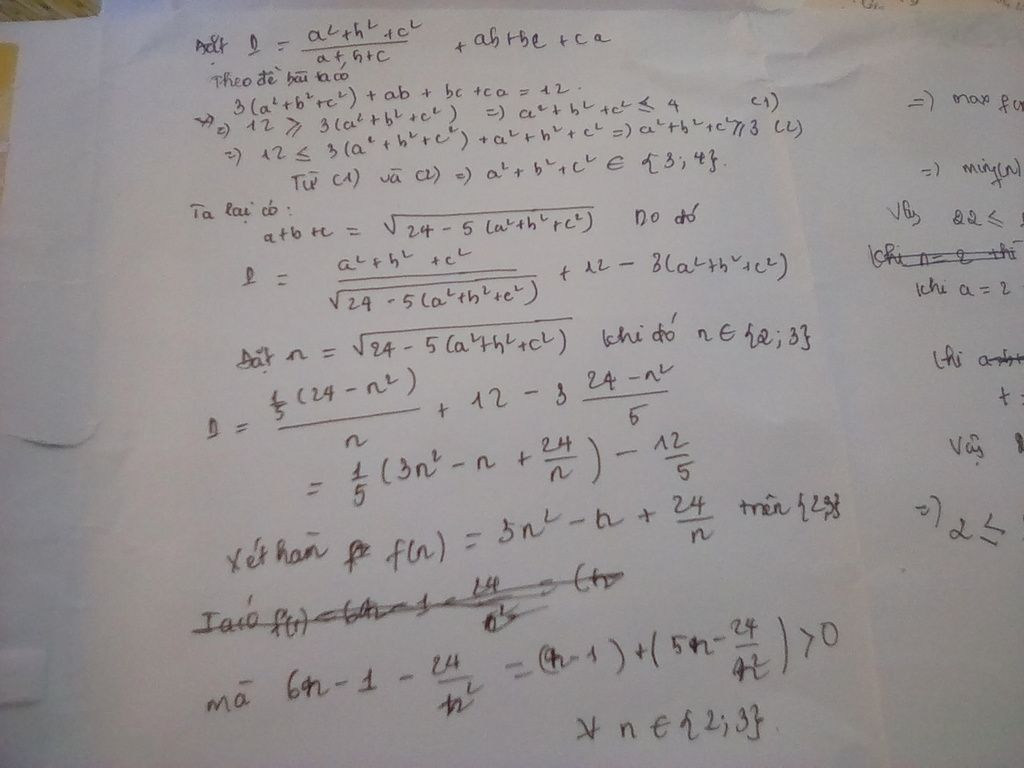 Đặt P = (a²+b²+c²)/(a+b+c) + ab+bc+ca
Theo đề bài ta có
3(a²+b²+c²) + ab + bc + ca = 12.
=> 12 ≥ 3(a²+b²+c²) => a²+b²+c² ≤ 4 (1)
=> 12 ≤ 3(a²+b²+c²) + a²+b²+c² => a²+b²+c² ≥ 3 (2)
Từ (1) và (2) => a²+b²+c² ∈ {3;4}.
Ta lại có:
a+b+c = √(24 - 5(a²+b²+c²)) Do đó
P = (a²+b²+c²)/√(24 - 5(a²+b²+c²)) + 12 - 3(a²+b²+c²)
Đặt n = √(24 - 5(a²+b²+c²)) khi đó n ∈ {2;3}
P = (1/5 (24 - n²))/n + 12 - 3 (24 - n²)/5
= 1/5 (3n² - n + 24/n) - 12/5
Xét hàm f(n) = 3n² - n + 24/n trên {2;3}
mà 6n - 1 - 24/n² = (n-1) + (5n - 24/n²) > 0
∀ n ∈ {2;3}.
=> max
=> min
Vậy 22 ≤
khi n = 2 thì
khi a = 2
khi
Vậy
=> 2 ≤